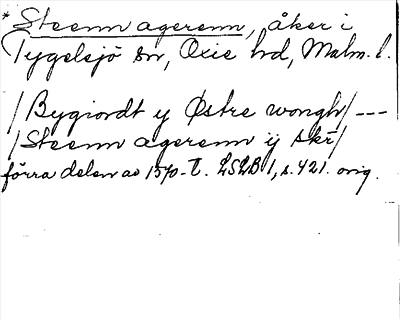 * Steenn agerenn, åker i
Tygelsjö sn, Oxie hd, Malm. l.
/Bygiordt y Østre wongh/ ---
/Steenn agerenn ij skr/
förra delen av 1570-t. LSLB 1, s. 421. orig.